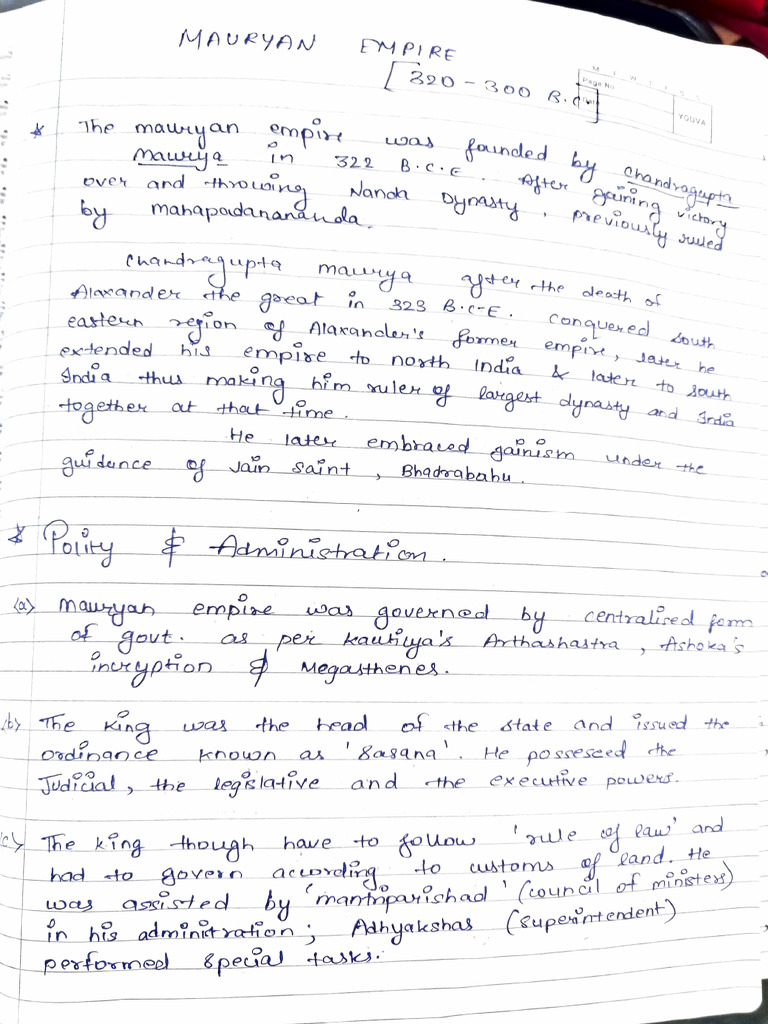 MAURYAN EMPIRE
[320 - 300 B.C]
M T W T F S S
Page No
YOUVA
* The mauryan empire was founded by chandragupta
maurya in 322 B.C.E. After gaining victory
over and throwing Nanda Dynasty, previously ruled
by mahapadanananda.
Chandragupta maurya after the death of
Alaxander the great in 323 B.C-E. conquered south
eastern region of Alaxander's former empire, later he
extended his empire to north India & later to south
India thus making him ruler of largest dynasty and India
together at that time.
He later embraced gainism under the
guidence of Jain saint, Bhadrabahu.
* Polity & Administration.
(a) Mauryan empire was governed by centralised form
of govt. as per kautilya's Arthashastra, Ashoka's
incryption & Megasthenes.
(b) The king was the head of the state and issued the
ordinance known as 'Sasana'. He posseseed the
Judicial, the legislative and the executive powers.
(c) The king though have to follow 'rule of law' and
had to govern according to customs of land. He
was assisted by 'mantriparishad' (council of ministers)
in his adminitration; Adhyakshas (superintendent)
performed special tasks.